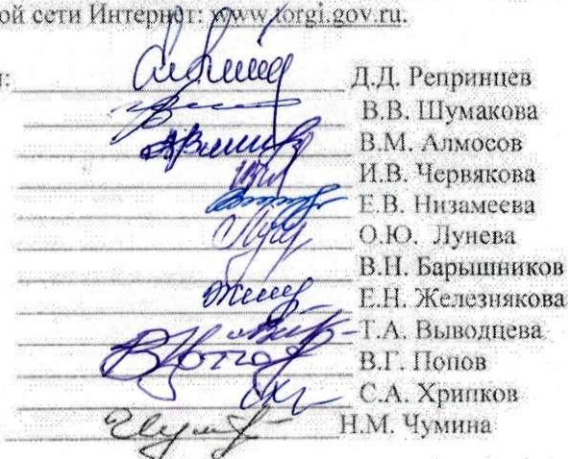 ой сети Интернет: www.torgi.gov.ru.
и:
Д.Д. Репринцев
В.В. Шумакова
В.М. Алмосов
И.В. Червякова
Е.В. Низамеева
О.Ю. Лунева
В.Н. Барышников
Е.Н. Железнякова
Т.А. Выводцева
В.Г. Попов
С.А. Хрипков
Н.М. Чумина